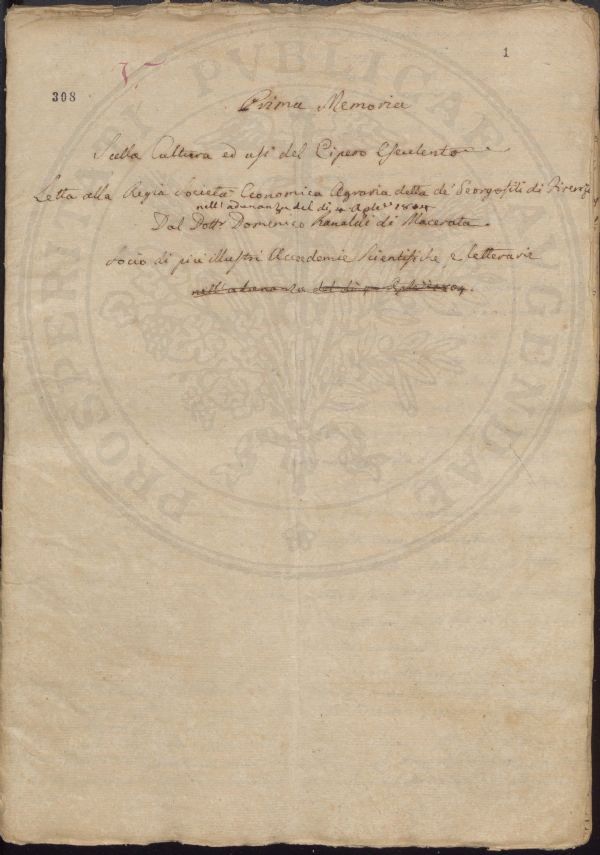 1
308
Prima Memoria
Sulla Cultura ed usi del Cipero Esculento
Letta alla Regia Società Economica Agraria detta de' Georgofili di Firenze
nell'adunanza del di 4 Aple 1804
Dal Dottr Domenico Ranaldi di Macerata
socio di più illustri Accademie Scientifiche, e letterarie
nell'adunanza del di
PROSPERITATI PVBLICAE AVGENDAE